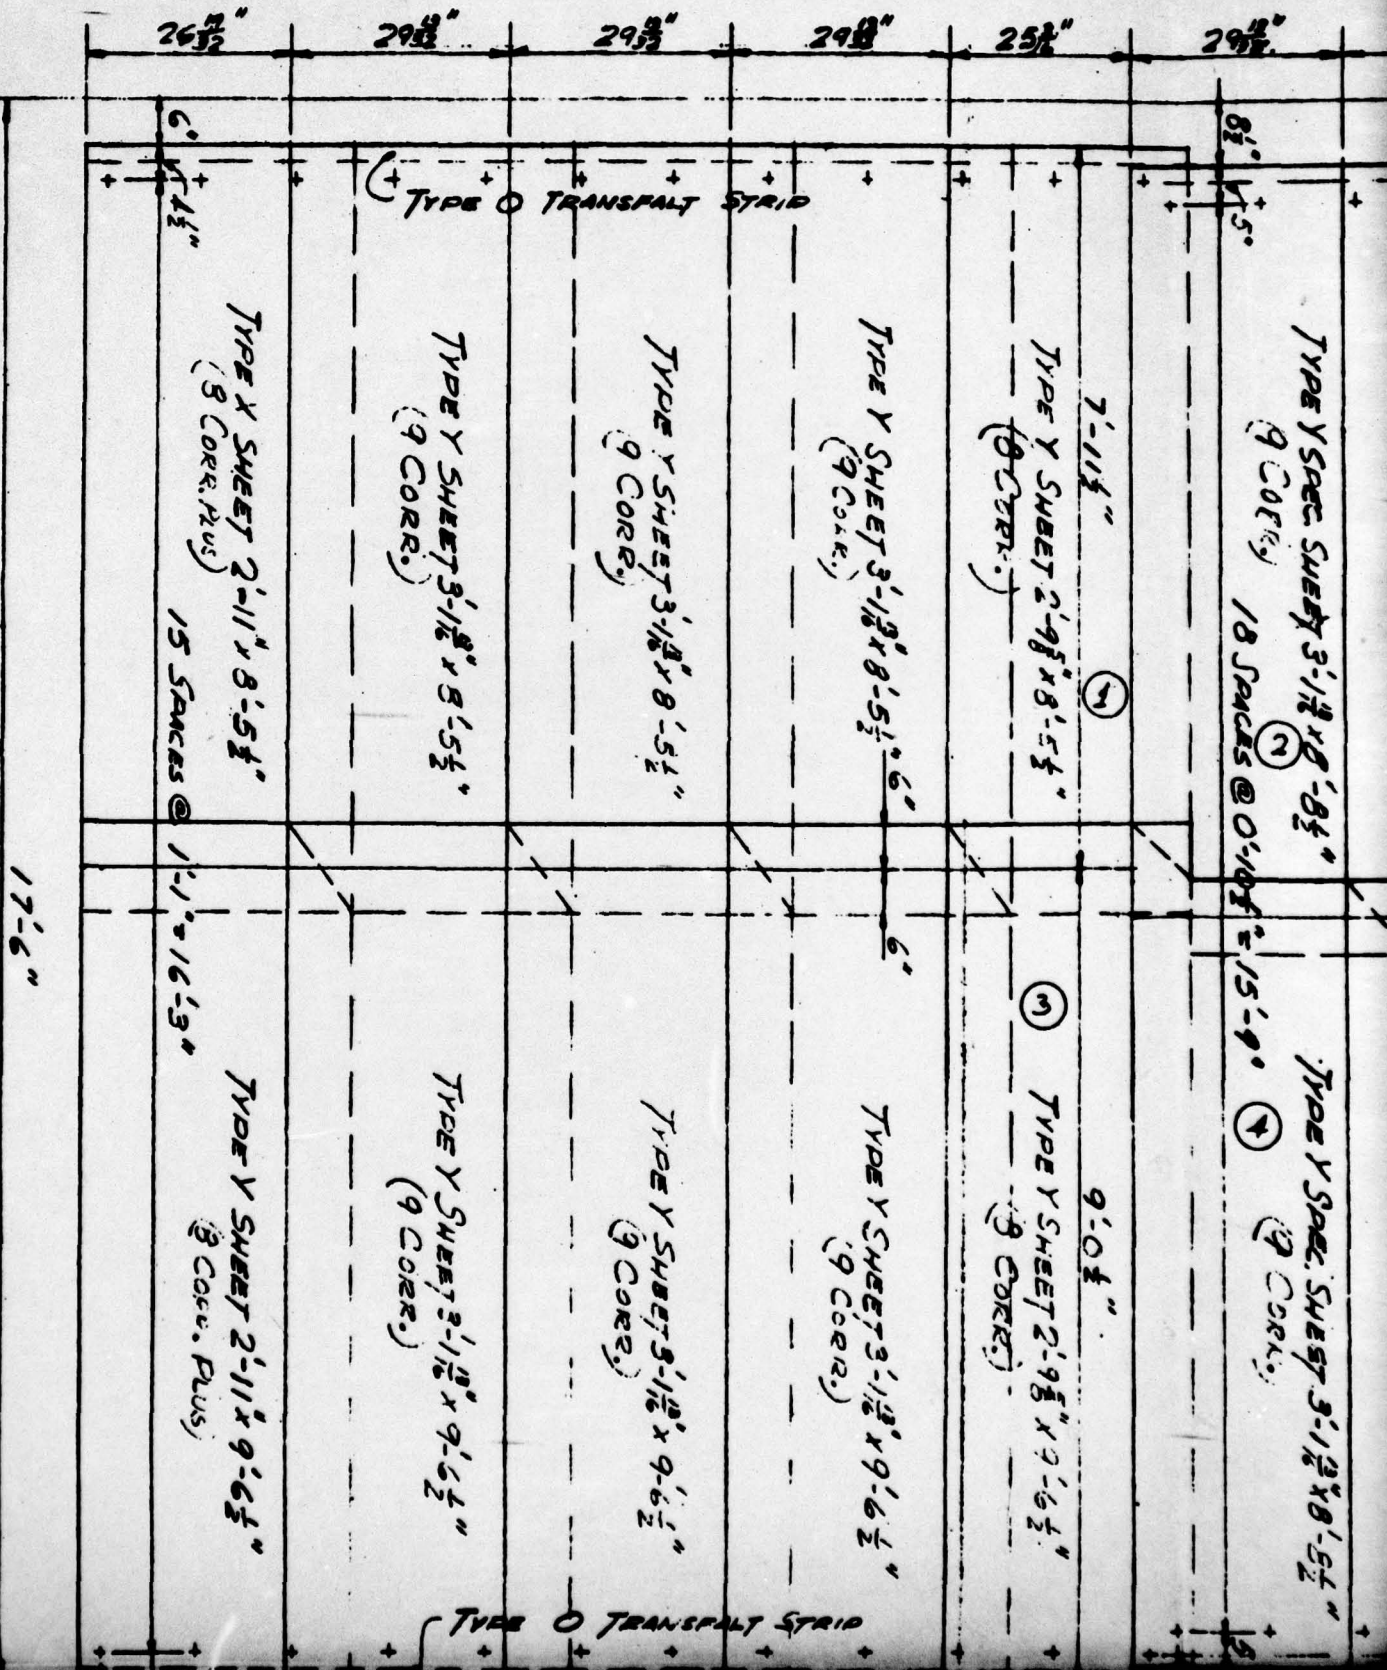 26 19/32" 29 13/32" 29 13/32" 29 13/32" 25 3/16" 29 13/32"
6"
4 1/2"
8 1/2"
5"
TYPE O TRANSFALT STRIP
TYPE X SHEET 2'-11" x 8'-5 1/2"
(8 CORR. PLUS)
TYPE Y SHEET 3'-1 13/16" x 8'-5 1/2"
(9 CORR.)
TYPE Y SHEET 3'-1 13/16" x 8'-5 1/2"
(9 CORR.)
TYPE Y SHEET 3'-1 13/16" x 8'-5 1/2"
(9 CORR.)
TYPE Y SHEET 2'-9 5/8" x 8'-5 1/2"
(8 CORR.)
7'-11 1/2"
1
TYPE Y SPEC SHEET 3'-1 13/16" x 8'-8 1/2"
(9 CORR.)
2
18 SPACES @ 0'-10 1/2" = 15'-9"
15 SPACES @ 1'-1" = 16'-3"
6"
6"
17'-6"
3
4
TYPE Y SHEET 2'-11" x 9'-6 1/2"
(8 CORR. PLUS)
TYPE Y SHEET 3'-1 13/16" x 9'-6 1/2"
(9 CORR.)
TYPE Y SHEET 3'-1 13/16" x 9'-6 1/2"
(9 CORR.)
TYPE Y SHEET 3'-1 13/16" x 9'-6 1/2"
(9 CORR.)
TYPE Y SHEET 2'-9 5/8" x 9'-6 1/2"
(8 CORR.)
9'-0 1/2"
TYPE Y SPEC. SHEET 3'-1 13/16" x 8'-
(9 CORR.)
TYPE O TRANSFALT STRIP